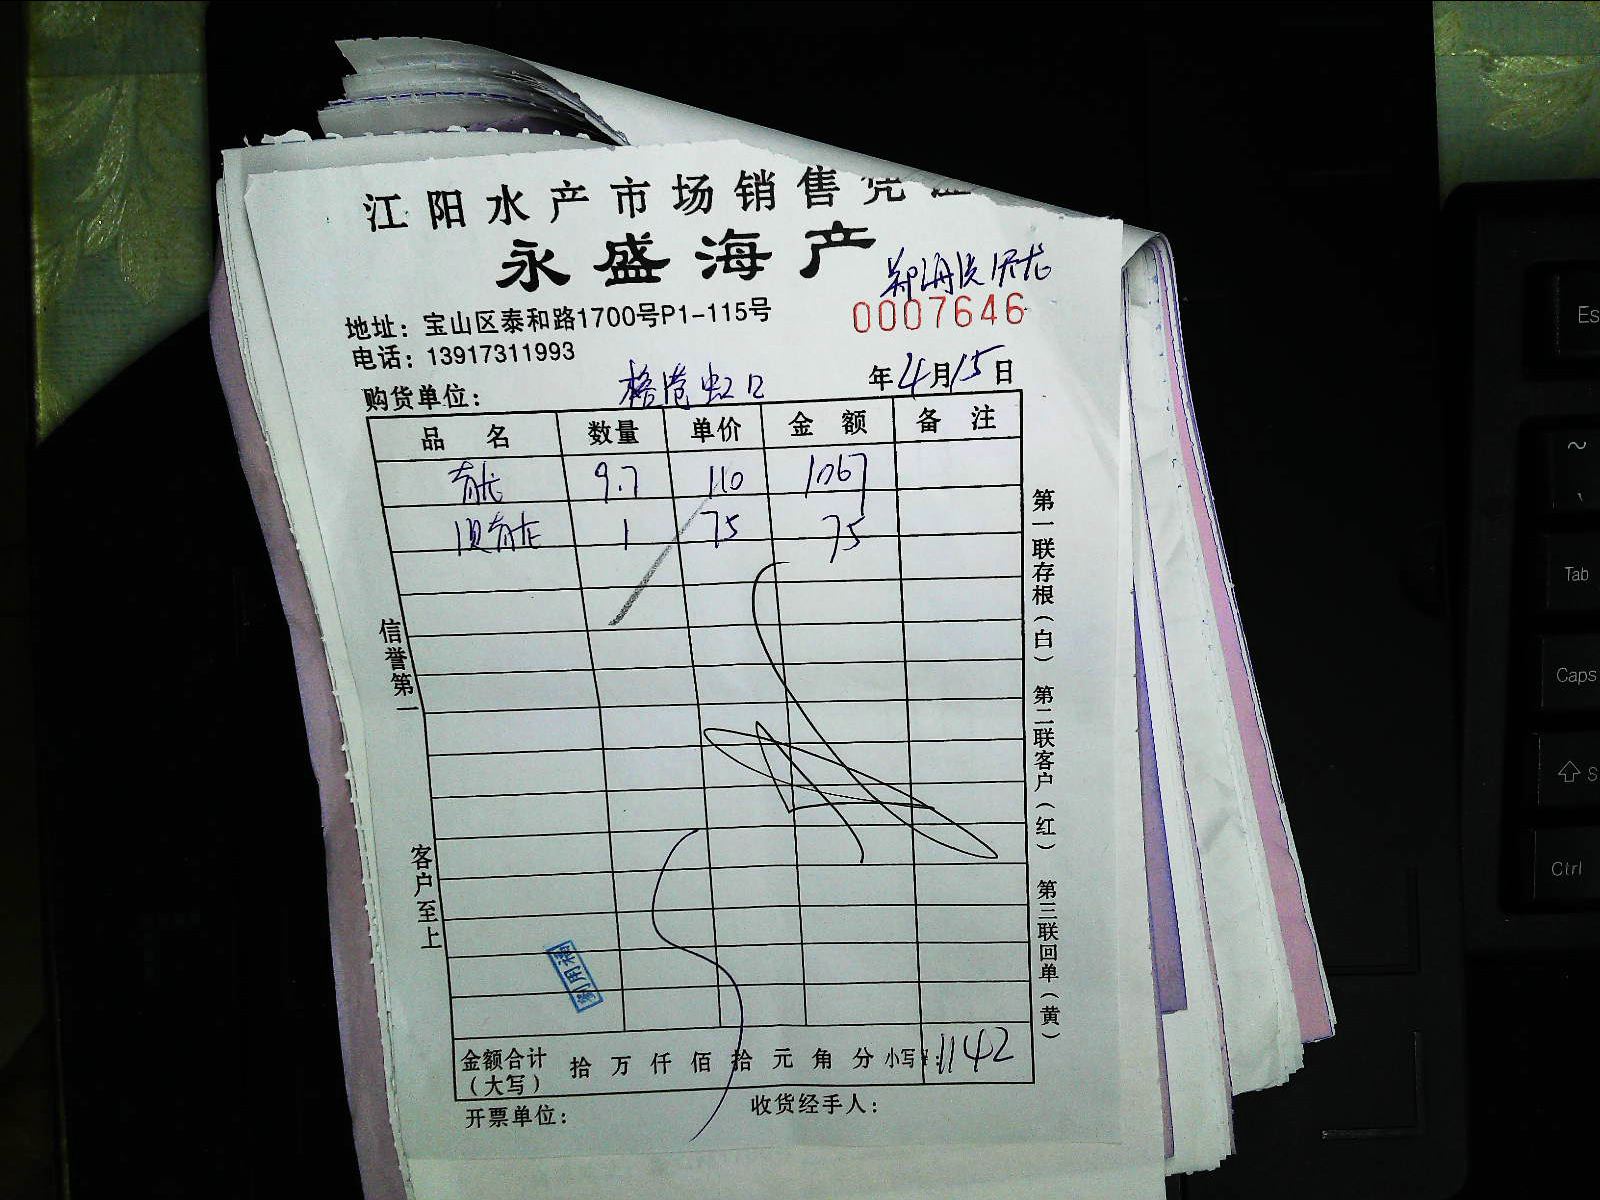 江阳水产市场销售凭证
永盛海产
0007646
地址：宝山区泰和路1700号P1-115号
电话：13917311993
购货单位： 虹口 年4月15日
品 名 数量 单价 金 额 备 注
青龙 9.7 110 1067
1 75 75
信誉第一
客户至上
第一联存根（白） 第二联客户（红） 第三联回单（黄）
金额合计（大写） 拾 万 仟 佰 拾 元 角 分 小写¥：1142
开票单位： 收货经手人：
Es
~
Tab
Caps
S
Ctrl